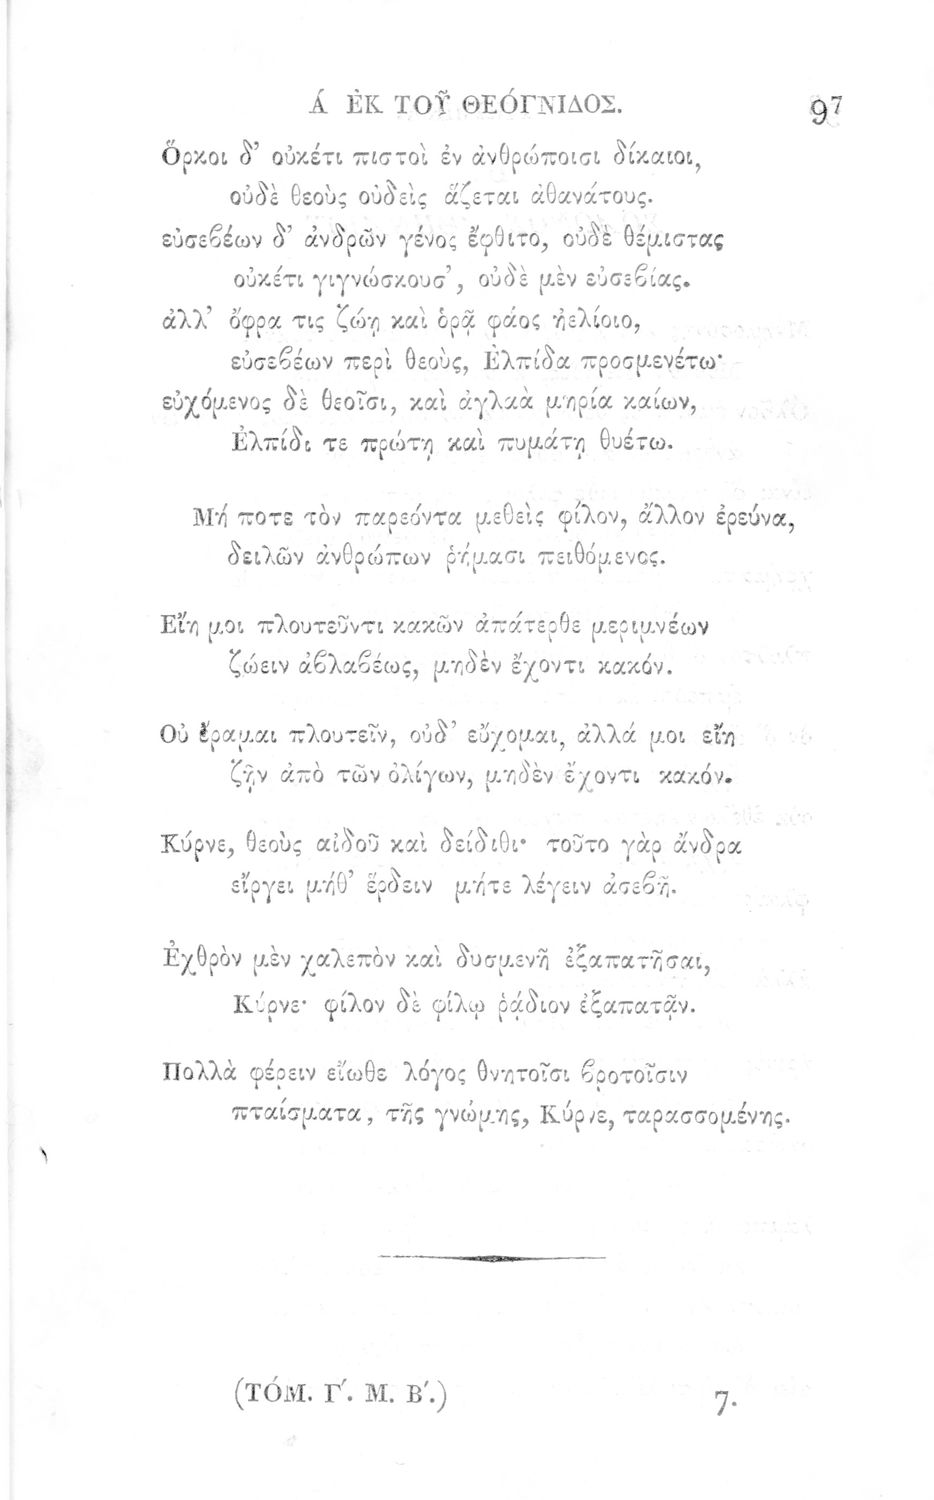 Ἁ ἘΚ ΤΟΥ͂ ΘΕΌΓΝΙΔΟΣ. 97
Ὅρκοι δ’ οὐκέτι πιστοὶ ἐν ἀνθρώποισι δίκαιοι,
οὐδὲ θεοὺς οὐδεὶς ἅζεται ἀθανάτους.
εὐσεβέων δ’ ἀνδρῶν γένος ἔφθιτο, οὐδὲ θέμιστας
οὐκέτι γιγνώσκουσ’, οὐδὲ μὲν εὐσεβίας.
ἀλλ’ ὄφρα τις ζώῃ καὶ ὁρᾷ φάος ἠελίοιο,
εὐσεβέων περὶ θεοὺς, Ἐλπίδα προσμενέτω·
εὐχόμενος δὲ θεοῖσι, καὶ ἀγλαὰ μηρία καίων,
Ἐλπίδι τε πρώτῃ καὶ πυμάτῃ θυέτω.
Μή ποτε τὸν παρεόντα μεθεὶς φίλον, ἄλλον ἐρεύνα,
δειλῶν ἀνθρώπων ῥήμασι πειθόμενος.
Εἴη μοι πλουτεῦντι κακῶν ἀπάτερθε μεριμνέων
ζώειν ἀβλαβέως, μηδὲν ἔχοντι κακόν.
Οὐ ἔραμαι πλουτεῖν, οὐδ’ εὔχομαι, ἀλλά μοι εἴη
ζῇν ἀπὸ τῶν ὀλίγων, μηδὲν ἔχοντι κακόν.
Κύρνε, θεοὺς αἰδοῦ καὶ δείδιθι· τοῦτο γὰρ ἄνδρα
εἴργει μήθ’ ἕρδειν μήτε λέγειν ἀσεβῆ.
Ἐχθρὸν μὲν χαλεπὸν καὶ δυσμενῆ ἐξαπατῆσαι,
Κύρνε· φίλον δὲ φίλῳ ῥᾴδιον ἐξαπατᾷν.
Πολλὰ φέρειν εἴωθε λόγος θνητοῖσι βροτοῖσιν
πταίσματα, τῆς γνώμης, Κύρνε, ταρασσομένης.
(ΤΌΜ. Γ΄. Μ. Β΄.) 7.